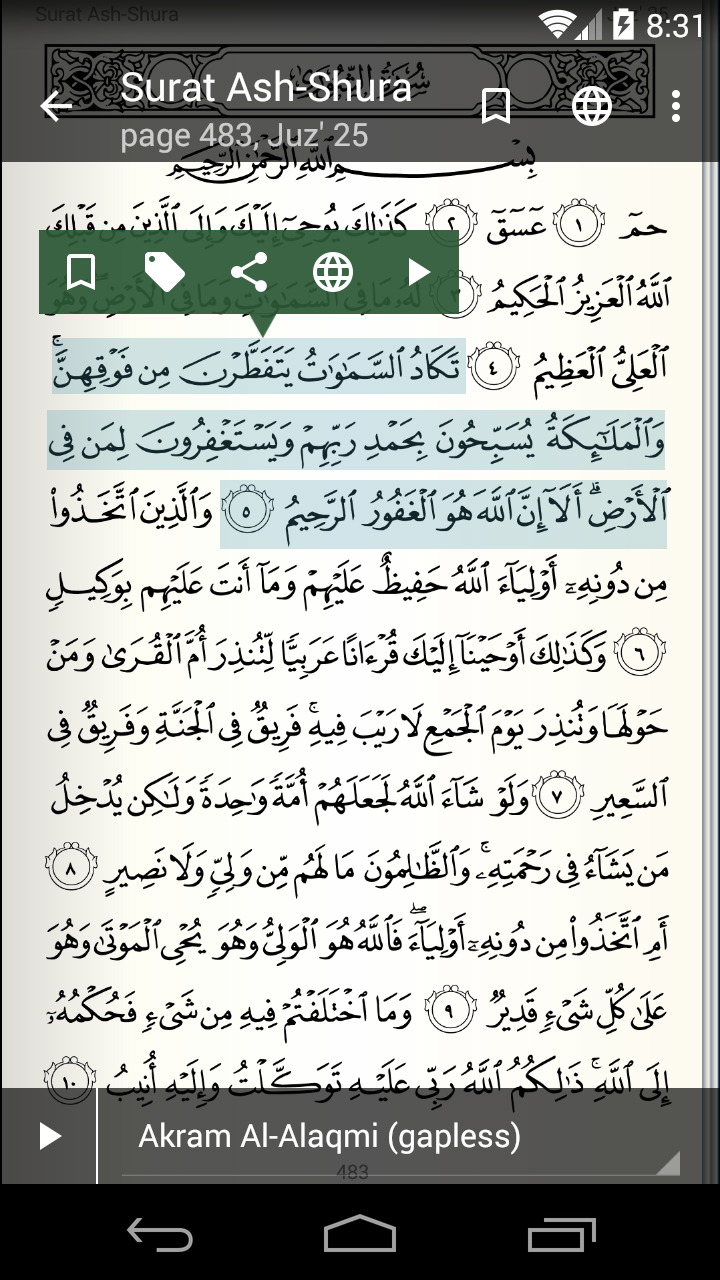 Surat Ash-Shura
Juz' 25
8:31
سُورَةُ الشُّورَىٰ
Surat Ash-Shura
page 483, Juz' 25
بِسْمِ اللَّهِ الرَّحْمَٰنِ الرَّحِيمِ
حمٓ ١ عٓسٓقٓ ٢ كَذَٰلِكَ يُوحِىٓ إِلَيْكَ وَإِلَى ٱلَّذِينَ مِن قَبْلِكَ
ٱللَّهُ ٱلْعَزِيزُ ٱلْحَكِيمُ ٣ لَهُۥ مَا فِى ٱلسَّمَٰوَٰتِ وَمَا فِى ٱلْأَرْضِ وَهُوَ
ٱلْعَلِىُّ ٱلْعَظِيمُ ٤ تَكَادُ ٱلسَّمَٰوَٰتُ يَتَفَطَّرْنَ مِن فَوْقِهِنَّ ۚ
وَٱلْمَلَٰٓئِكَةُ يُسَبِّحُونَ بِحَمْدِ رَبِّهِمْ وَيَسْتَغْفِرُونَ لِمَن فِى
ٱلْأَرْضِ ۗ أَلَآ إِنَّ ٱللَّهَ هُوَ ٱلْغَفُورُ ٱلرَّحِيمُ ٥ وَٱلَّذِينَ ٱتَّخَذُوا۟
مِن دُونِهِۦٓ أَوْلِيَآءَ ٱللَّهُ حَفِيظٌ عَلَيْهِمْ وَمَآ أَنتَ عَلَيْهِم بِوَكِيلٍ
٦ وَكَذَٰلِكَ أَوْحَيْنَآ إِلَيْكَ قُرْءَانًا عَرَبِيًّا لِّتُنذِرَ أُمَّ ٱلْقُرَىٰ وَمَنْ
حَوْلَهَا وَتُنذِرَ يَوْمَ ٱلْجَمْعِ لَا رَيْبَ فِيهِ ۚ فَرِيقٌ فِى ٱلْجَنَّةِ وَفَرِيقٌ فِى
ٱلسَّعِيرِ ٧ وَلَوْ شَآءَ ٱللَّهُ لَجَعَلَهُمْ أُمَّةً وَٰحِدَةً وَلَٰكِن يُدْخِلُ
مَن يَشَآءُ فِى رَحْمَتِهِۦ ۚ وَٱلظَّٰلِمُونَ مَا لَهُم مِّن وَلِىٍّ وَلَا نَصِيرٍ ٨
أَمِ ٱتَّخَذُوا۟ مِن دُونِهِۦٓ أَوْلِيَآءَ ۖ فَٱللَّهُ هُوَ ٱلْوَلِىُّ وَهُوَ يُحْىِ ٱلْمَوْتَىٰ وَهُوَ
عَلَىٰ كُلِّ شَىْءٍ قَدِيرٌ ٩ وَمَا ٱخْتَلَفْتُمْ فِيهِ مِن شَىْءٍ فَحُكْمُهُۥٓ
إِلَى ٱللَّهِ ۚ ذَٰلِكُمُ ٱللَّهُ رَبِّى عَلَيْهِ تَوَكَّلْتُ وَإِلَيْهِ أُنِيبُ ١٠
Akram Al-Alaqmi (gapless)
483